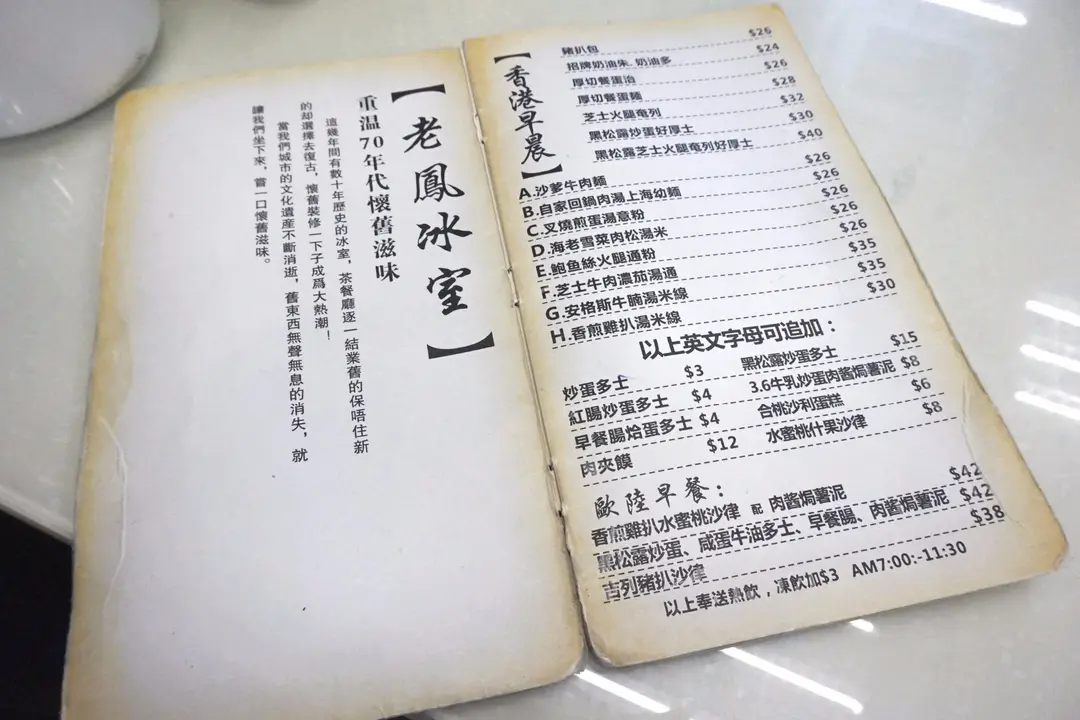 【老鳳冰室】
重温70年代懷舊滋味
這幾年間有數十年歷史的冰室，茶餐廳逐一結業舊的保唔住新
的却選擇去復古，懷舊裝修一下子成爲大熱潮！
當我們城市的文化遺産不斷消逝，舊東西無聲無息的消失，就
讓我們坐下來，嘗一口懷舊滋味。
【香港早晨】
豬扒包 $26
招牌奶油朱. 奶油多 $24
厚切餐蛋治 $26
厚切餐蛋麵 $28
芝士火腿奄列 $32
黑松露炒蛋好厚士 $30
黑松露芝士火腿奄列好厚士 $40
A.沙爹牛肉麵 $26
B.自家回鍋肉湯上海幼麵 $26
C.叉燒煎蛋湯意粉 $26
D.海老雪菜肉松湯米 $26
E.鮑鱼絲火腿通粉 $26
F.芝士牛肉濃茄湯通 $35
G.安格斯牛腩湯米線 $35
H.香煎雞扒湯米線 $30
以上英文字母可追加：
炒蛋多士 $3 黑松露炒蛋多士 $15
紅腸炒蛋多士 $4 3.6牛乳炒蛋肉酱焗薯泥 $8
早餐腸烚蛋多士 $4 合桃沙利蛋糕 $6
肉夾饃 $12 水蜜桃什果沙律 $8
歐陸早餐：
香煎雞扒水蜜桃沙律 配 肉酱焗薯泥 $42
黑松露炒蛋、咸蛋牛油多士、早餐腸、肉酱焗薯泥 $42
吉列豬扒沙律 $38
以上奉送熱飲，凍飲加$3 AM7:00:-11:30